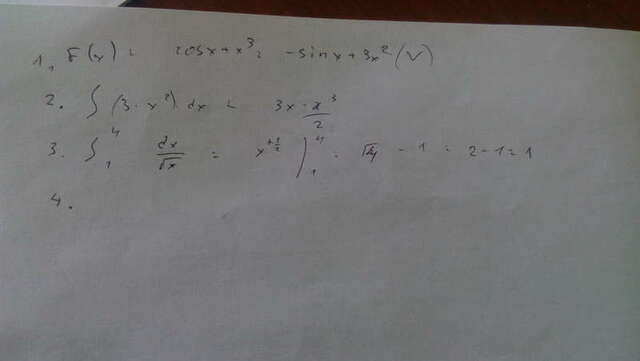 1, F(x) = cosx+x³ = -sinx+3x² (V)
2. ∫ (3 - x²) dx = 3x - x³/2
3. ∫₁⁴ dx/√x = x^(+1/2) |₁⁴ = √4 - 1 = 2-1=1
4.